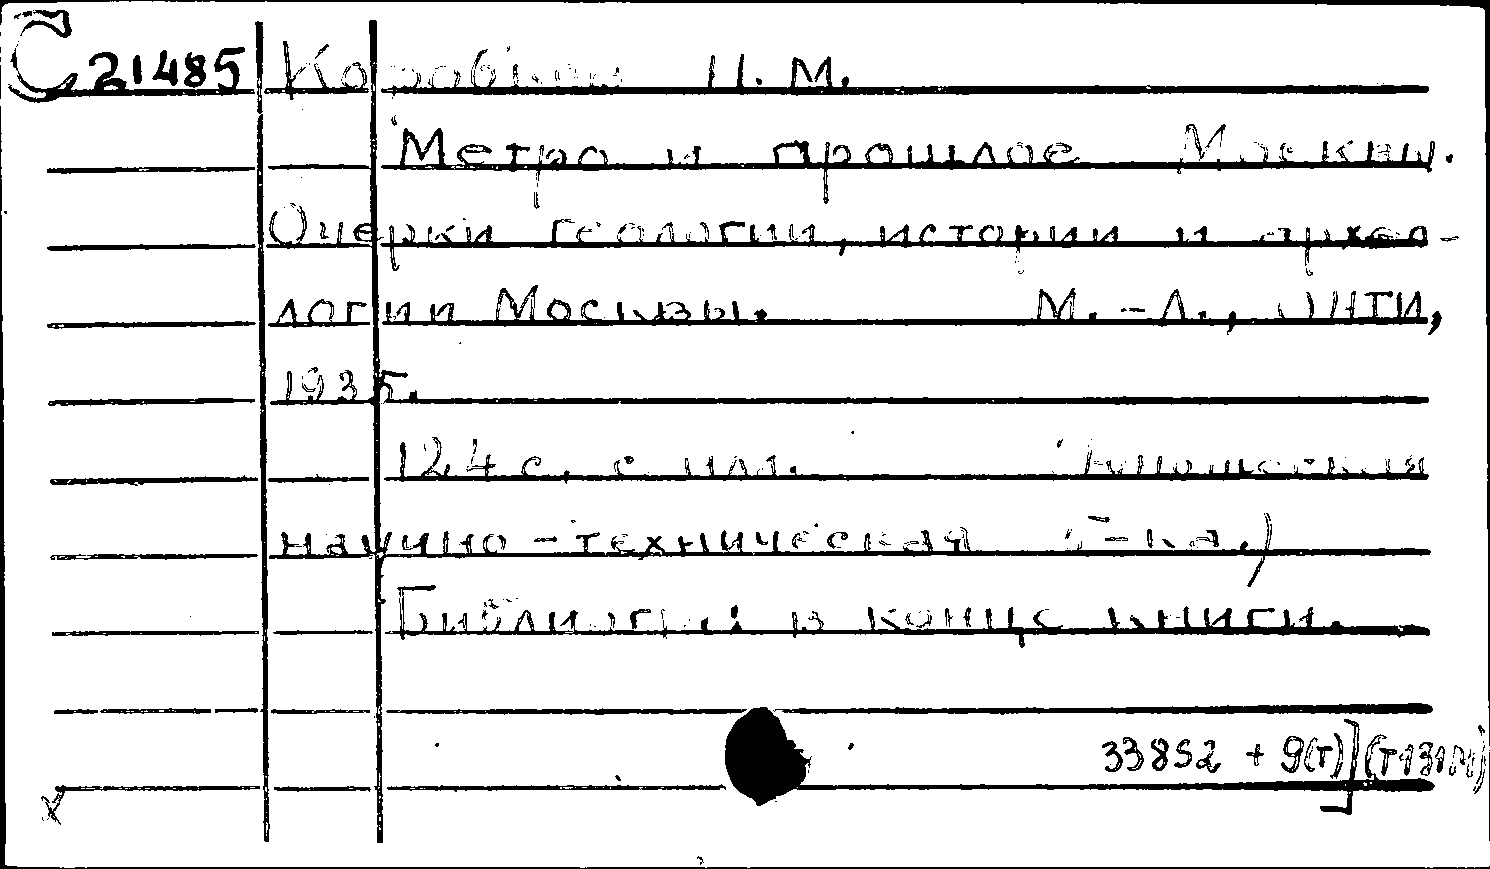 С 21485 Коробков Н. М.
Метро и прошлое Москвы.
Очерки геологии, истории и архео-
логии Москвы. М.-Л., ОНТИ,
1935.
124 с. с илл. (Юношеская
научно-техническая б-ка.)
Библиогр.: в конце книги.
33852 + 9(Т)] (Т131М)